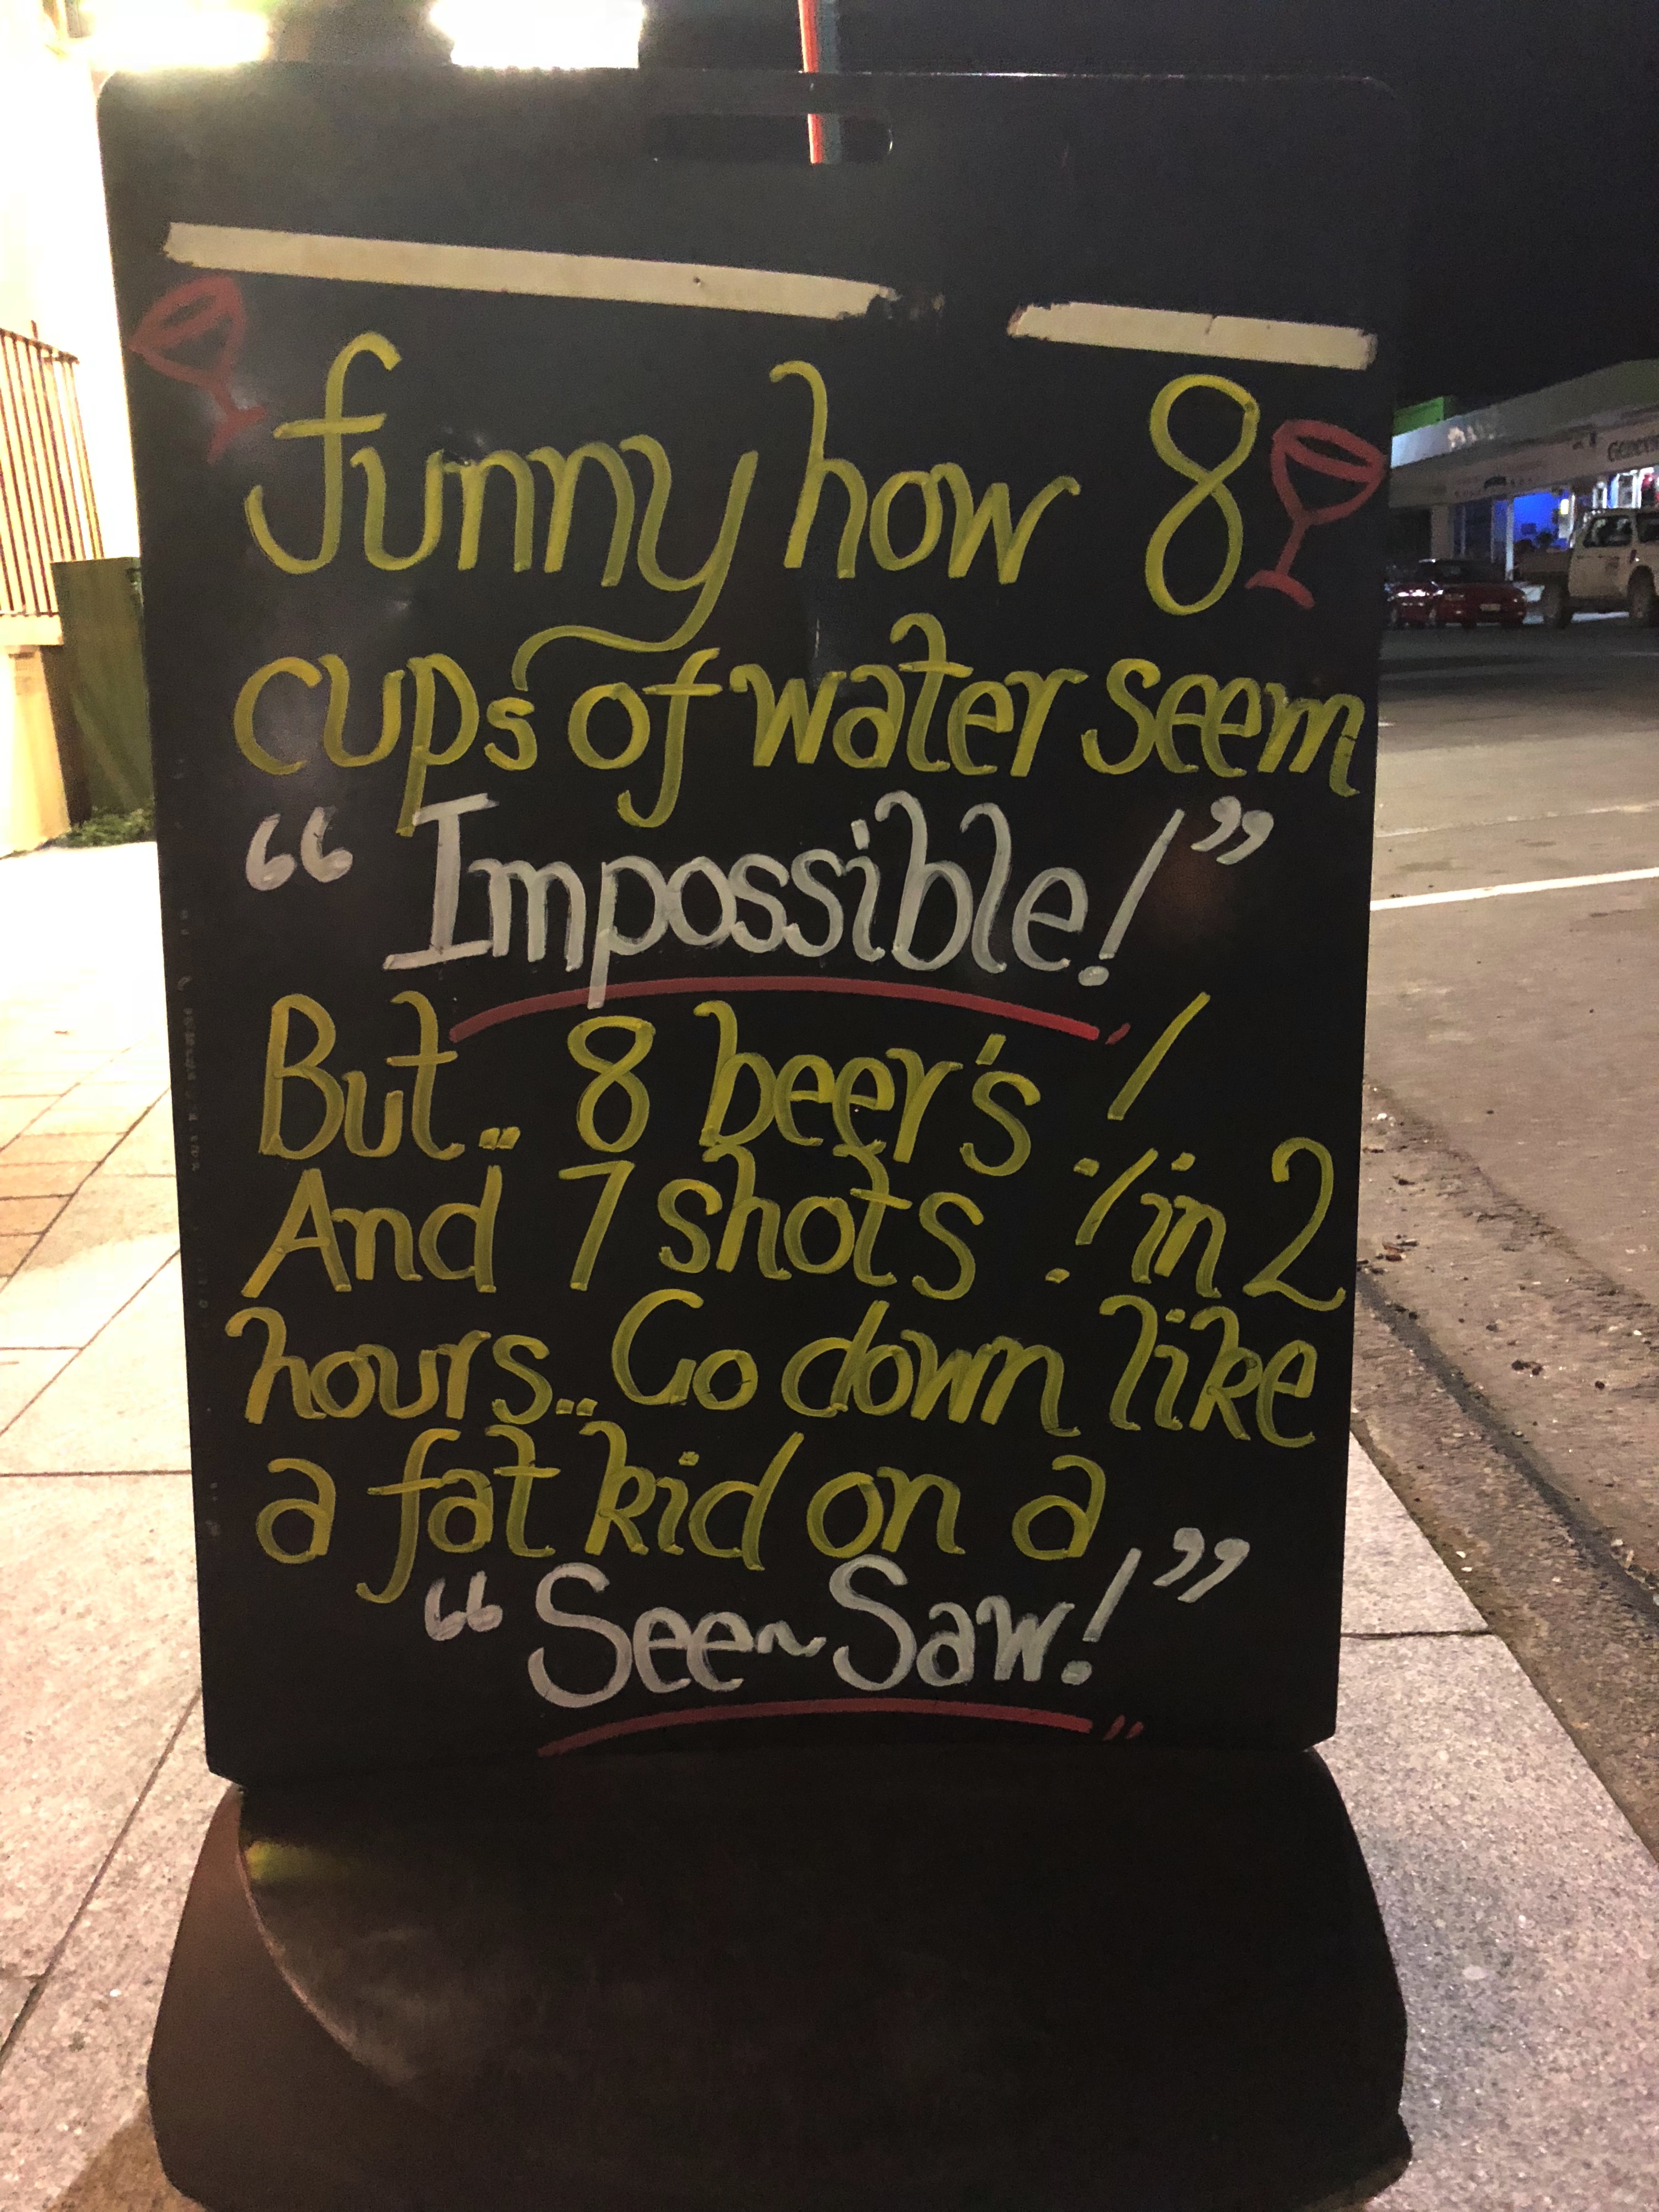 funny how 8
cups of water seem
“Impossible!”
But.. 8 beer's!
And 7 shots! in 2
hours.. Go down like
a fat kid on a
“See~Saw!”